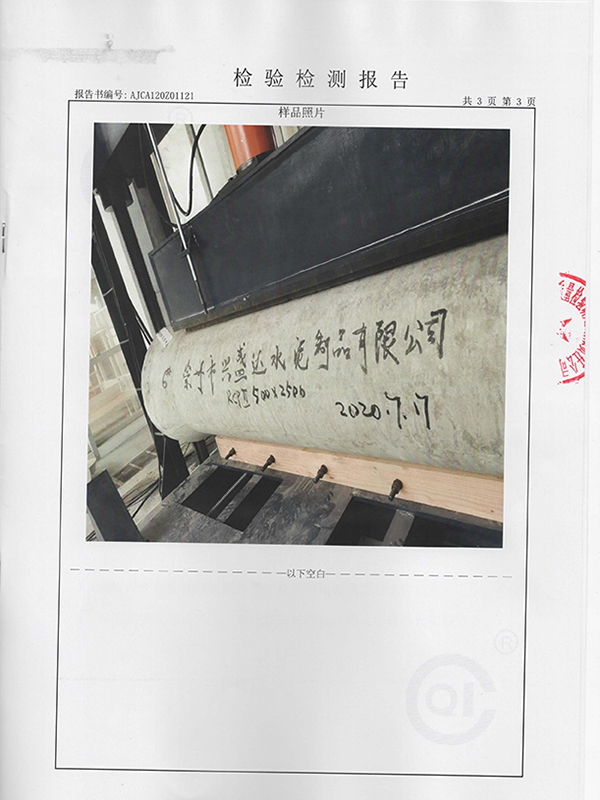 检验检测报告
报告书编号:AJCA120Z01121
共 3 页 第 3 页
样品照片
6# 莱州市兴盛达水泥制品有限公司
RCPⅡ500×2500
2020.7.17
以下空白
CQI
®